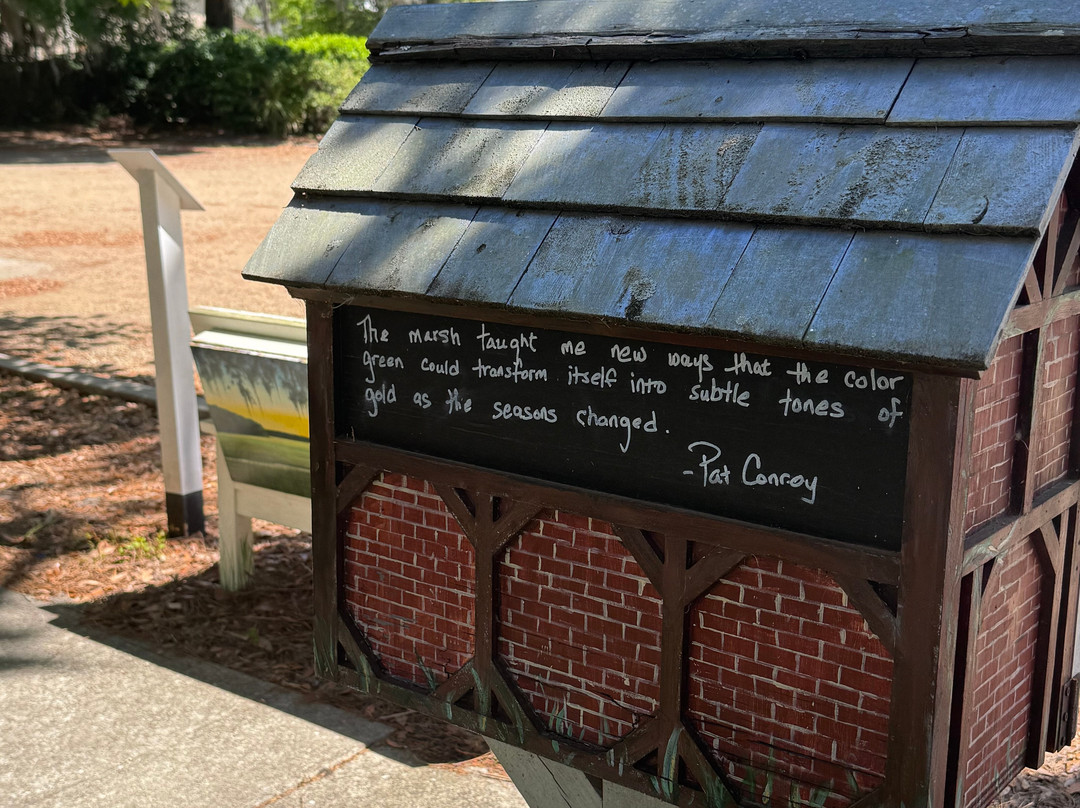 The marsh taught me new ways that the color
green could transform itself into subtle tones of
gold as the seasons changed.
-Pat Conroy